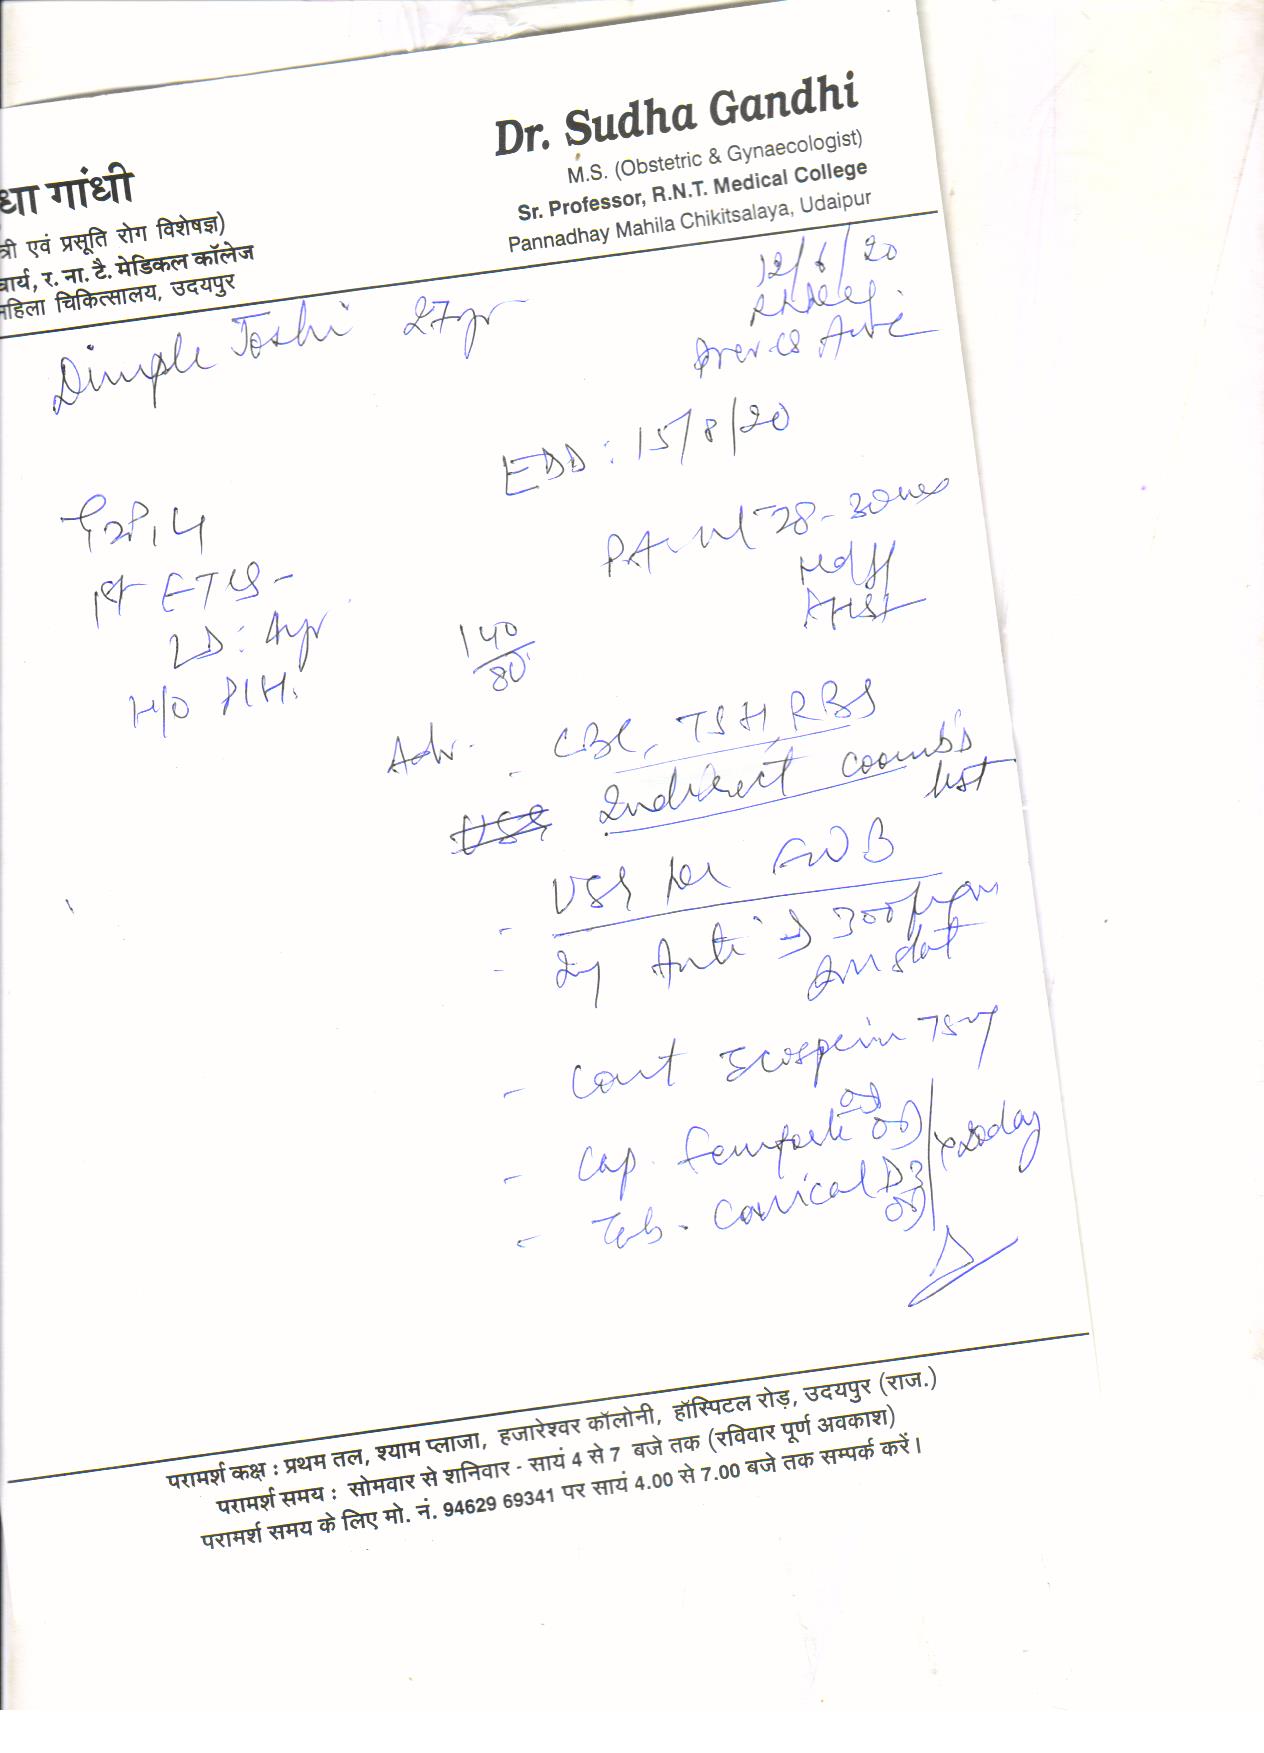 Dr. Sudha Gandhi
M.S. (Obstetric & Gynaecologist)
Sr. Professor, R.N.T. Medical College
Pannadhay Mahila Chikitsalaya, Udaipur
धा गांधी
त्री एवं प्रसूति रोग विशेषज्ञ)
चार्य, र. ना. टै. मेडिकल कॉलेज
महिला चिकित्सालय, उदयपुर
12/6/20
Dimple Joshi 27yr
Prev CS
EDD : 15/8/20
PA 28-30
1st FTCS -
LD : 4yr
H/O PIH.
140/80
Adv. - CBC, TSH, RBS
Indirect coomb's test
- USG for FWB
- Inj Anti D 300 μgm
IM stat
- Cont Ecosprin 75mg
- Cap. Femforte OD
- Tab. D3 OD
x 20 day
परामर्श कक्ष : प्रथम तल, श्याम प्लाजा, हजारेश्वर कॉलोनी, हॉस्पिटल रोड़, उदयपुर (राज.)
परामर्श समय : सोमवार से शनिवार - सायं 4 से 7 बजे तक (रविवार पूर्ण अवकाश)
परामर्श समय के लिए मो. नं. 94629 69341 पर सायं 4.00 से 7.00 बजे तक सम्पर्क करें।